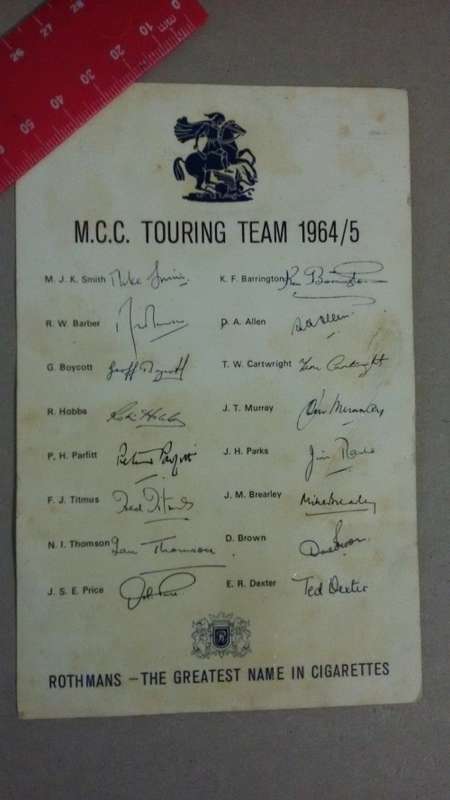 26 27 28
10 20 30 40 50
M.C.C. TOURING TEAM 1964/5
M. J. K. Smith Mike Smith K. F. Barrington Ken Barrington
R. W. Barber D. A. Allen D.A. Allen
G. Boycott Geoff Boycott T. W. Cartwright Tom Cartwright
R. Hobbs Robin Hobbs J. T. Murray John Murray
P. H. Parfitt Peter Parfitt J. H. Parks Jim Parks
F. J. Titmus Fred Titmus J. M. Brearley Mike Brearley
N. I. Thomson Ian Thomson D. Brown
J. S. E. Price John Price E. R. Dexter Ted Dexter
R
ROTHMANS – THE GREATEST NAME IN CIGARETTES